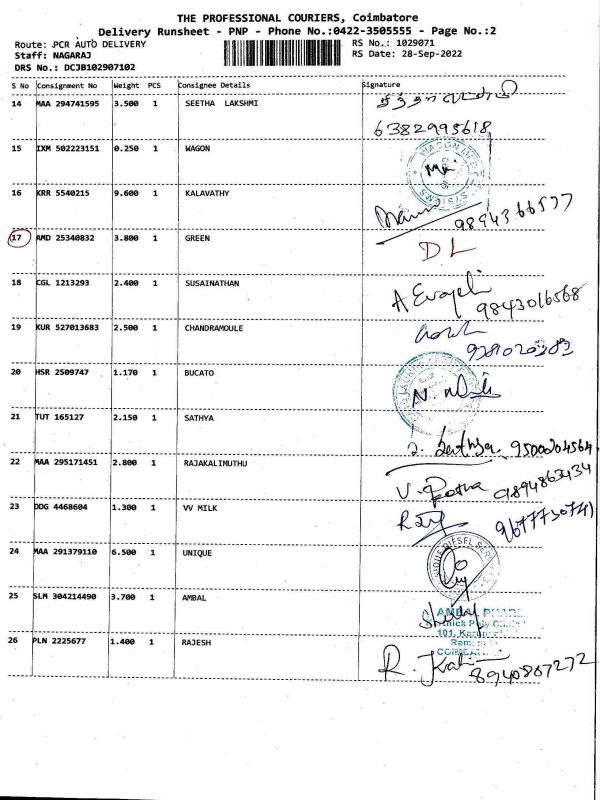 THE PROFESSIONAL COURIERS, Coimbatore
Delivery Runsheet - PNP - Phone No.:0422-3505555 - Page No.:2
Route: PCR AUTO DELIVERY
RS No.: 1029071
Staff: NAGARAJ
RS Date: 28-Sep-2022
DRS No.: DCJB102907102
S No Consignment No Weight PCS Consignee Details Signature
14 MAA 294741595 3.500 1 SEETHA LAKSHMI
6382995618
15 IXM 502223151 0.250 1 WAGON
16 KRR 5540215 9.600 1 KALAVATHY
9894366577
17 AMD 25340832 3.800 1 GREEN DL
18 CGL 1213293 2.400 1 SUSAINATHAN
9843016568
19 KUR 527013683 2.500 1 CHANDRAMOULE
20 HSR 2509747 1.170 1 BUCATO
21 TUT 165127 2.150 1 SATHYA
9500204564
22 MAA 295171451 2.800 1 RAJAKALIMUTHU
9894863434
23 DDG 4468604 1.300 1 VV MILK
9677730741
24 MAA 291379110 6.500 1 UNIQUE
25 SLM 304214490 3.700 1 AMBAL
26 PLN 2225677 1.400 1 RAJESH
8940807272